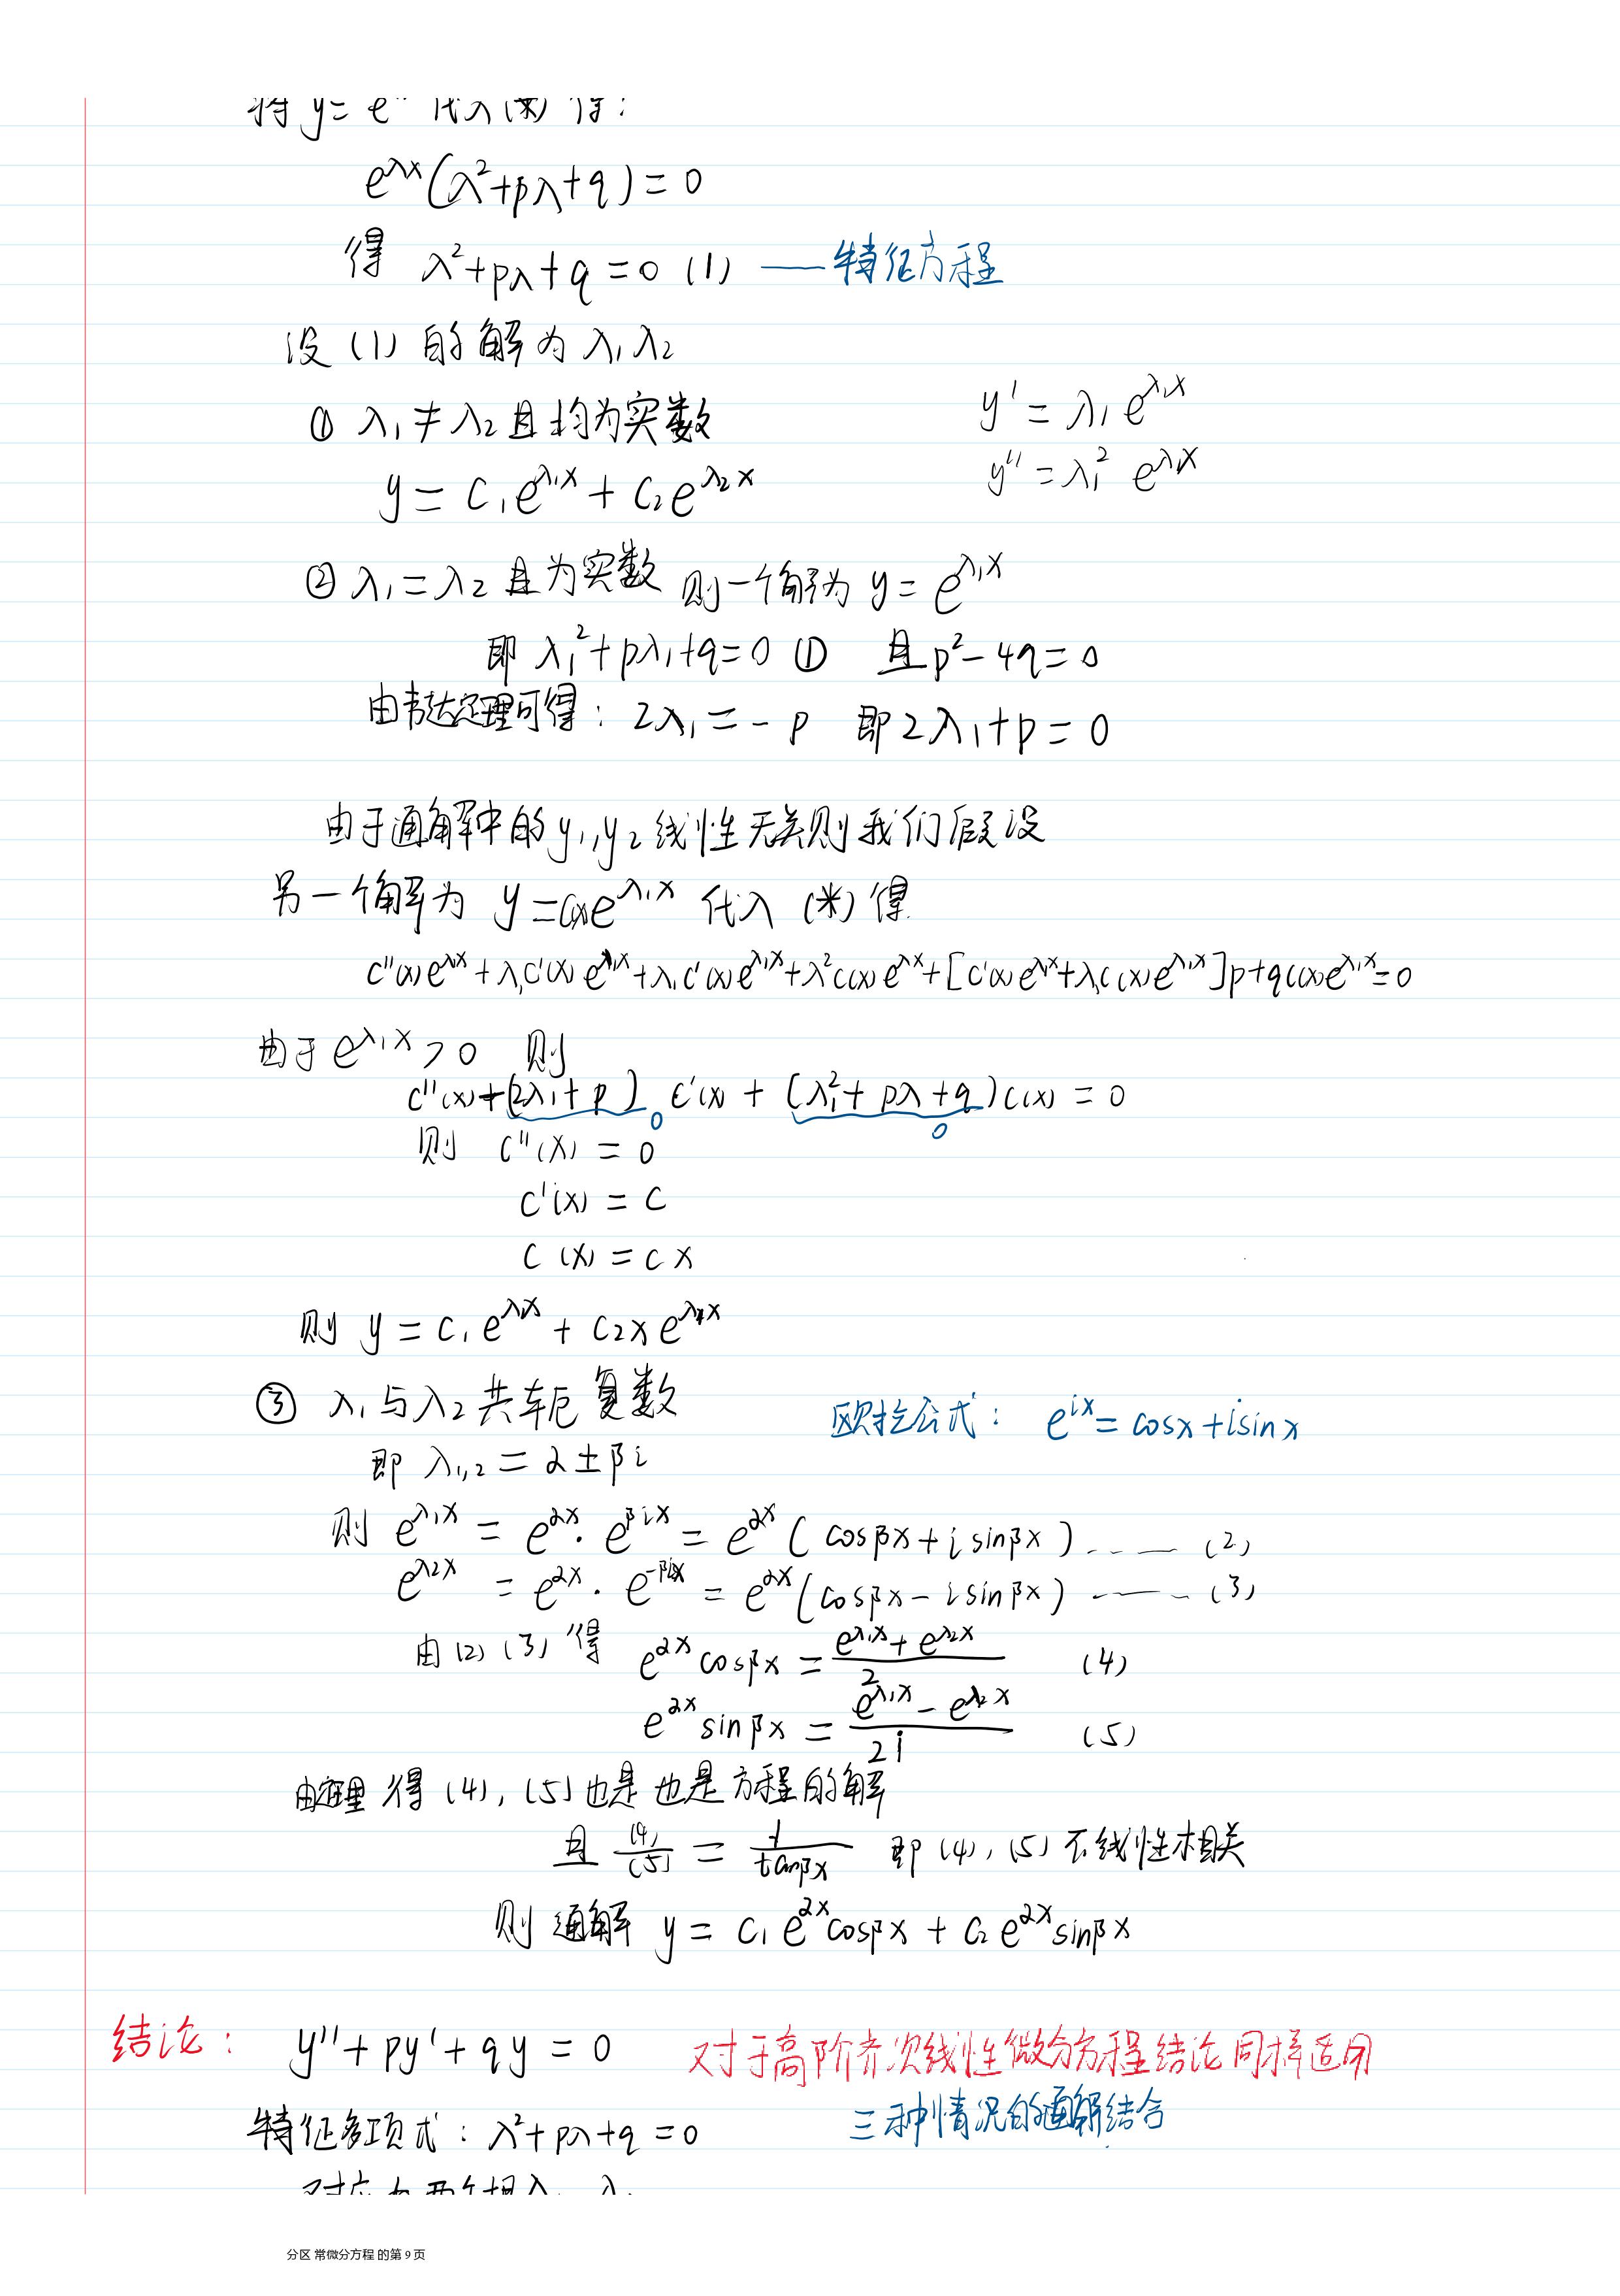 将 y = e 代入(*) 得:
e^{λx}(λ²+pλ+q) = 0
得 λ²+pλ+q = 0 (1) ——特征方程
设 (1) 的解为 λ₁ λ₂
① λ₁ ≠ λ₂ 且均为实数 y' = λ₁ e^{λ₁x}
y = C₁e^{λ₁x} + C₂e^{λ₂x} y'' = λ₁² e^{λ₁x}
② λ₁ = λ₂ 且为实数 则一个解为 y = e^{λ₁x}
即 λ₁²+pλ₁+q=0 ① 且 p²-4q=0
由韦达定理可得: 2λ₁ = -p 即 2λ₁+p = 0
由于通解中的 y₁,y₂ 线性无关则我们假设
另一个解为 y = C(x)e^{λ₁x} 代入 (*) 得
C''(x)e^{λx} + λ₁C'(x)e^{λ₁x} + λ₁C'(x)e^{λ₁x} + λ²C(x)e^{λx} + [C'(x)e^{λ₁x} + λ₁C(x)e^{λ₁x}]p + qC(x)e^{λ₁x} = 0
由于 e^{λ₁x} > 0 则
C''(x) + (2λ₁+p) C'(x) + (λ₁²+pλ+q)C(x) = 0
0 0
则 C''(x) = 0
C'(x) = C
C(x) = Cx
则 y = C₁e^{λ₁x} + C₂xe^{λ₁x}
③ λ₁与λ₂共轭复数 欧拉公式: e^{ix} = cosx + isinx
即 λ₁,₂ = α±βi
则 e^{λ₁x} = e^{αx}·e^{βix} = e^{αx}(cosβx + isinβx) ...... (2)
e^{λ₂x} = e^{αx}·e^{-βix} = e^{αx}(cosβx - isinβx) ...... (3)
由(2)(3)得 e^{αx}cosβx = \frac{e^{λ₁x}+e^{λ₂x}}{2} (4)
e^{αx}sinβx = \frac{e^{λ₁x}-e^{λ₂x}}{2i} (5)
由定理 得 (4),(5)也是也是方程的解
且 \frac{(4)}{(5)} = \frac{1}{tanβx} 即 (4),(5)不线性相关
则 通解 y = C₁e^{αx}cosβx + C₂e^{αx}sinβx
结论: y''+py'+qy = 0 对于高阶齐次线性微分方程结论同样适用
三种情况的通解结合
特征多项式: λ²+pλ+q = 0
对应有两个根λ₁ λ₂
分区 常微分方程 的第 9 页